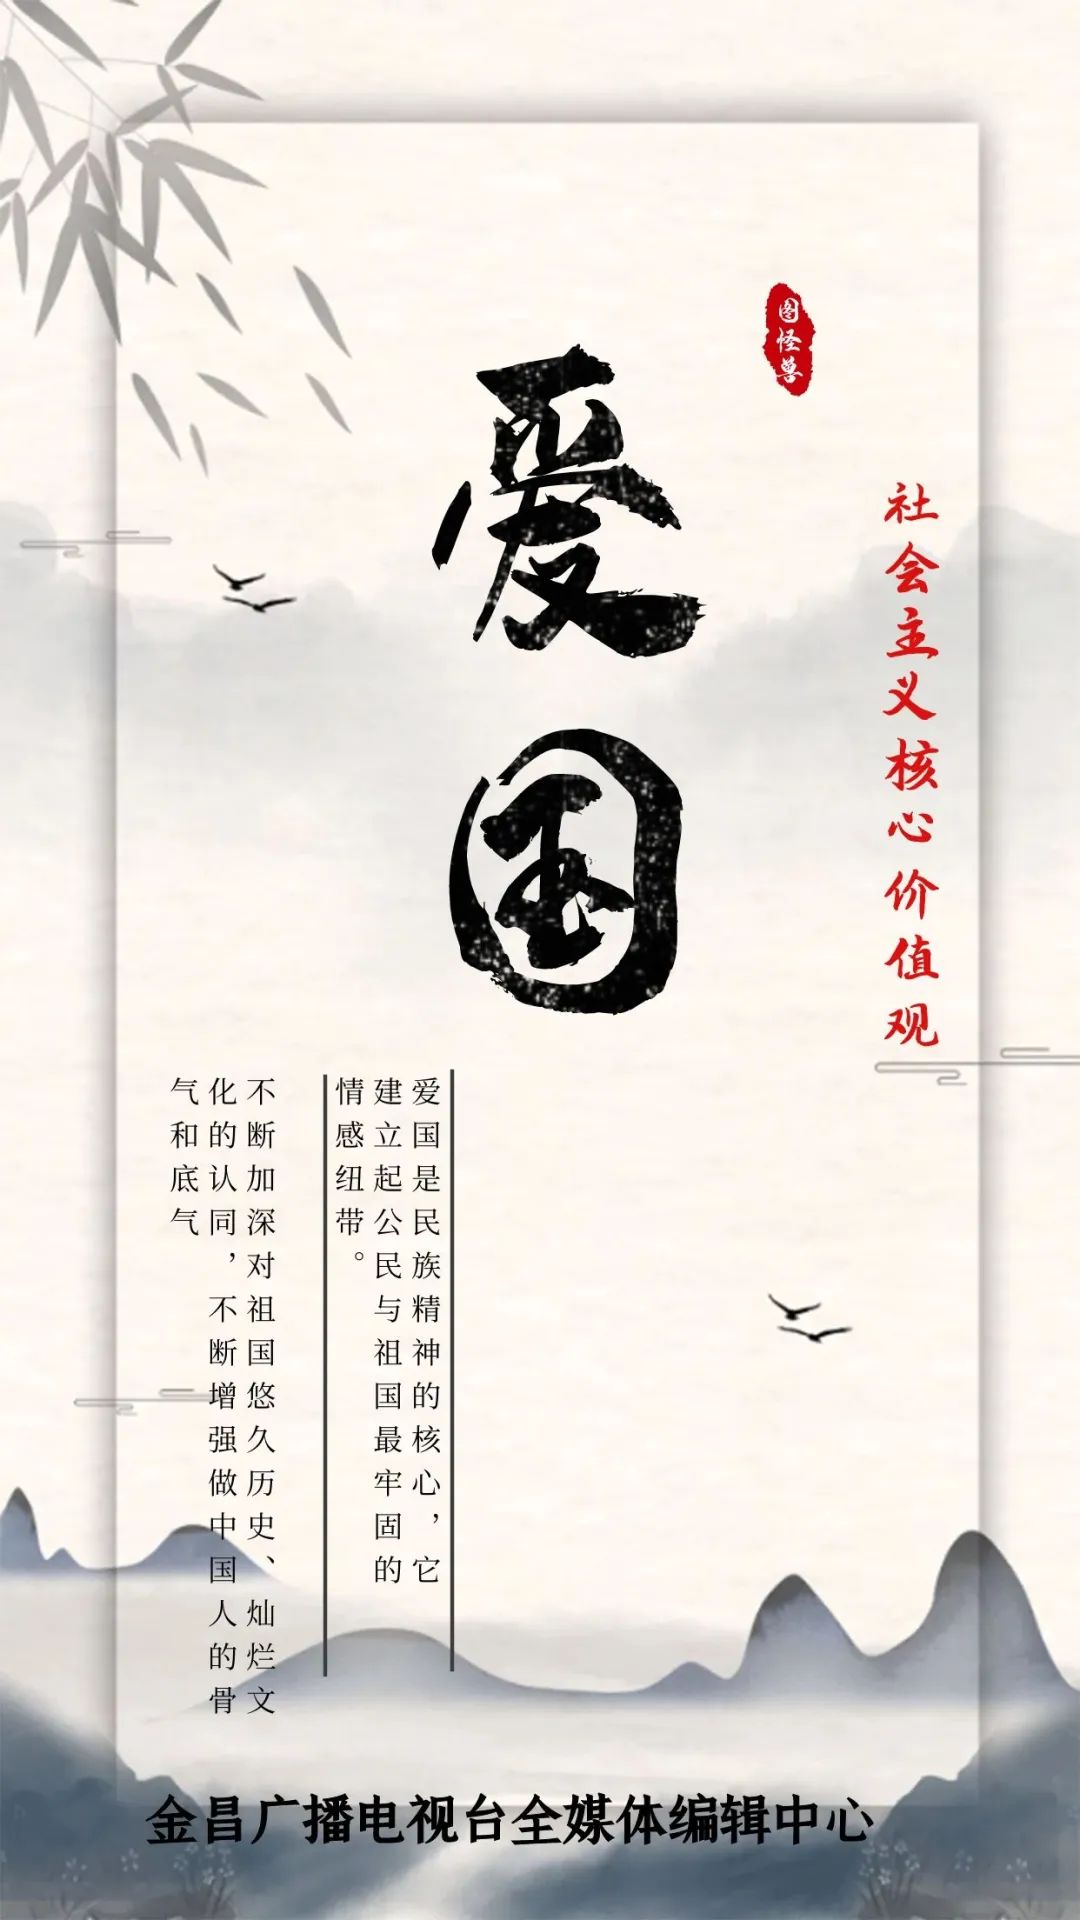 图怪兽
社会主义核心价值观
爱国
爱国是民族精神的核心，它
建立起公民与祖国最牢固的
情感纽带。
不断加深对祖国悠久历史、灿烂文
化的认同，不断增强做中国人的骨
气和底气
金昌广播电视台全媒体编辑中心